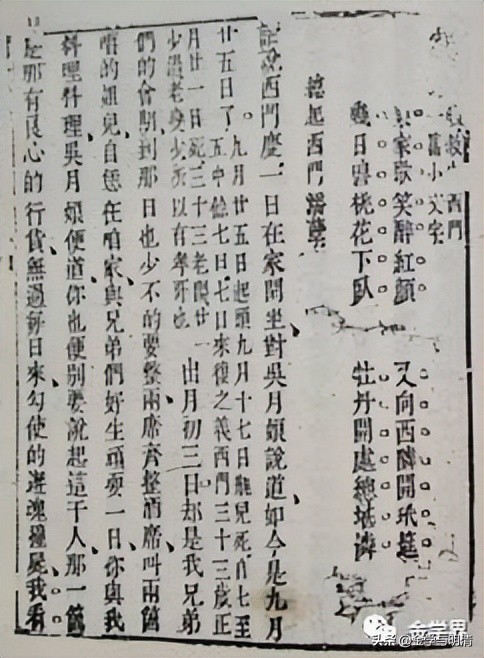 西門
當小文字
家歌笑醉紅顏 又向西隣開玳筵
幾日碧桃花下臥 牡丹開處總堪憐
總起西門潘
話說西門慶一日在家閒坐、對吳月娘說道如今是九月
廿五日了。九月廿五日起頭九月十七日瓶兒死自七至
五中餘七日七日來復之義西門三十三歲正
月廿一日死三十三老陽廿一
少陽老變少所以有孝哥也
出月初三日却是我兄弟
們的會期、到那日也少不的要整兩席齊整酒席、叫兩箇
唱的姐兒、自恁在咱家與兄弟們好生頑耍一日、你與我
料理料理、吳月娘便道、你也便別要說起這干人、那一箇
是那有良心的行貨、無過每日來勾使的遊魂撞屍。我看
金学界
头条 @金学与明清